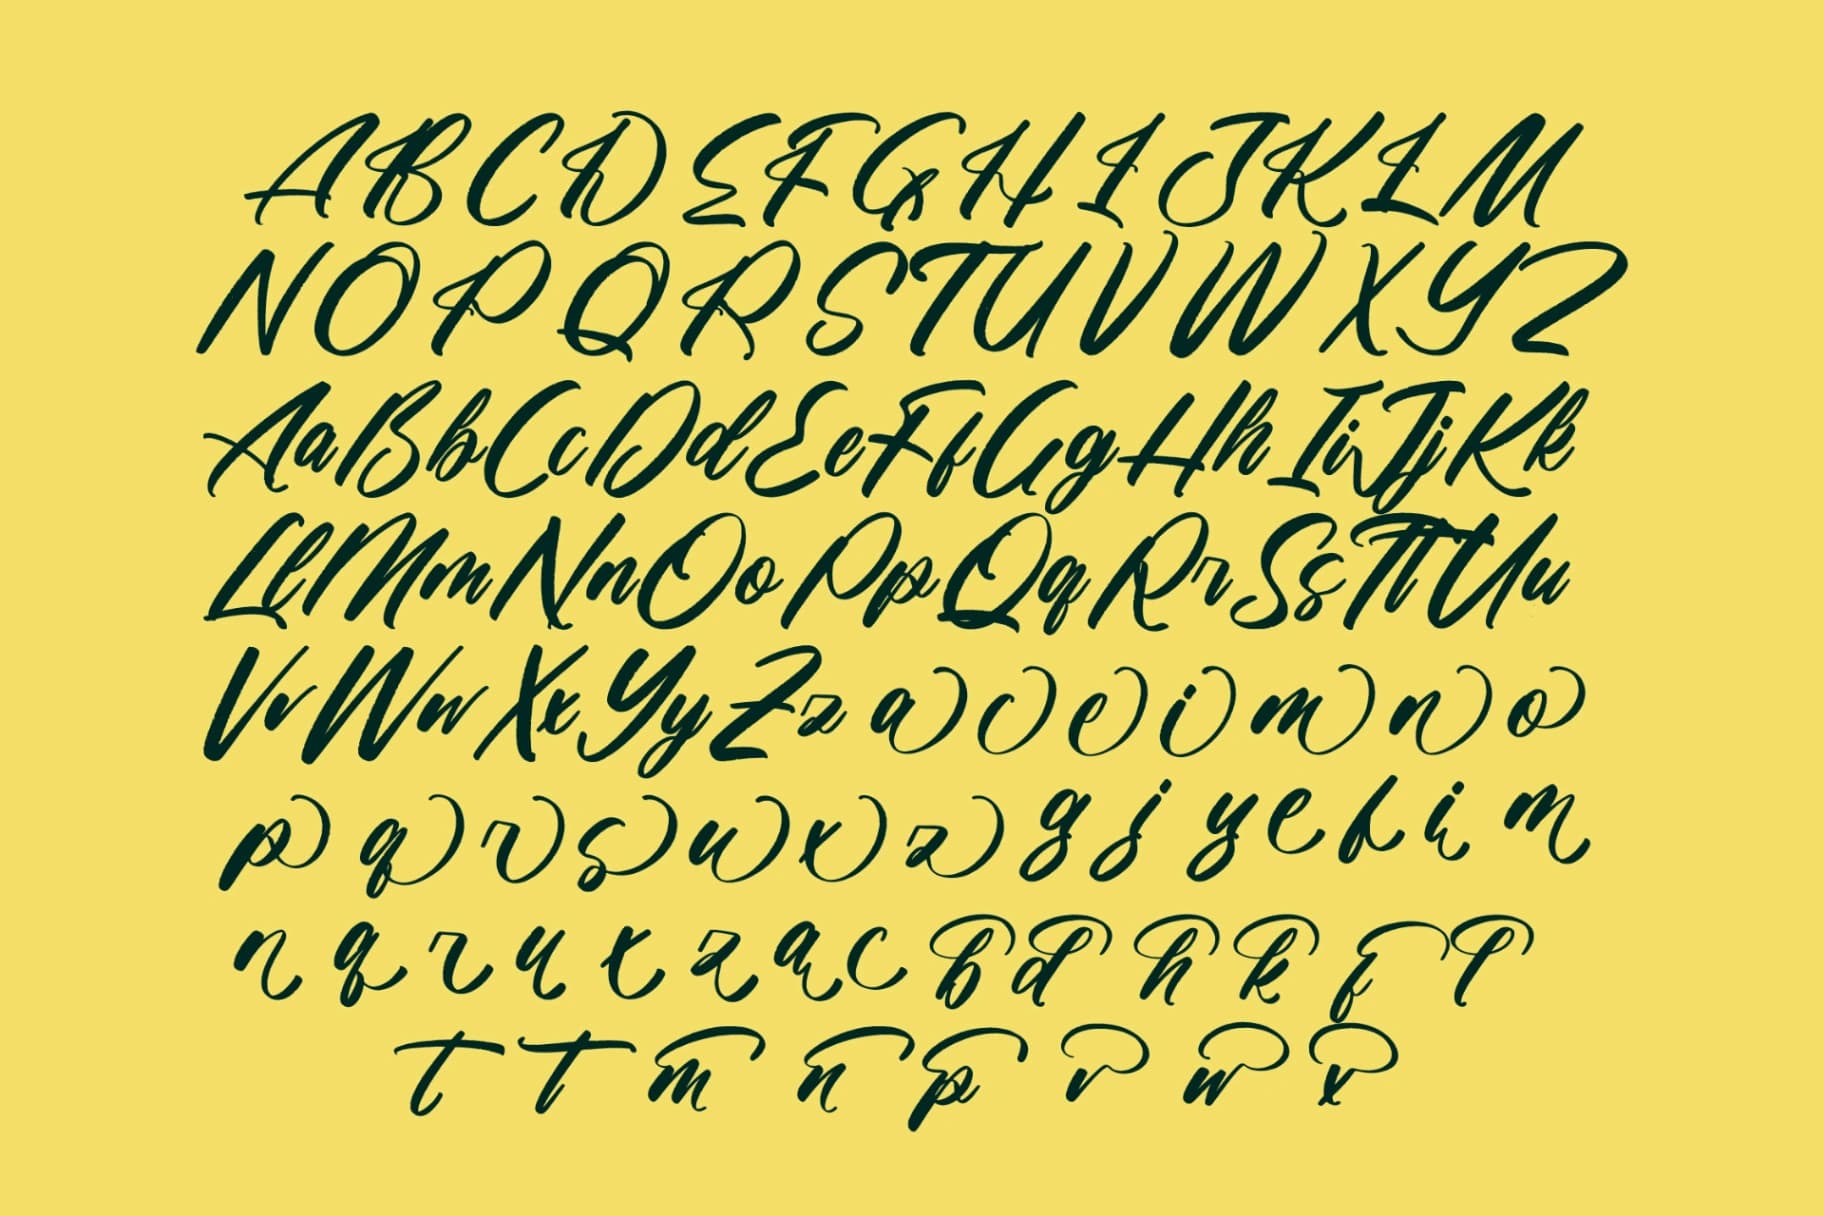 ABCDEFGHIJKLM
NOPQRSTUVWXYZ
AaBbCcDdEeFfGgHhIiJjKk
LlMmNnOoPpQqRrSsTtUu
VvWwXxYyZz a c e i m n o
p q r s u x z g j y e h i m
n q r u t z a c b d h k f l
t t m n p v w x